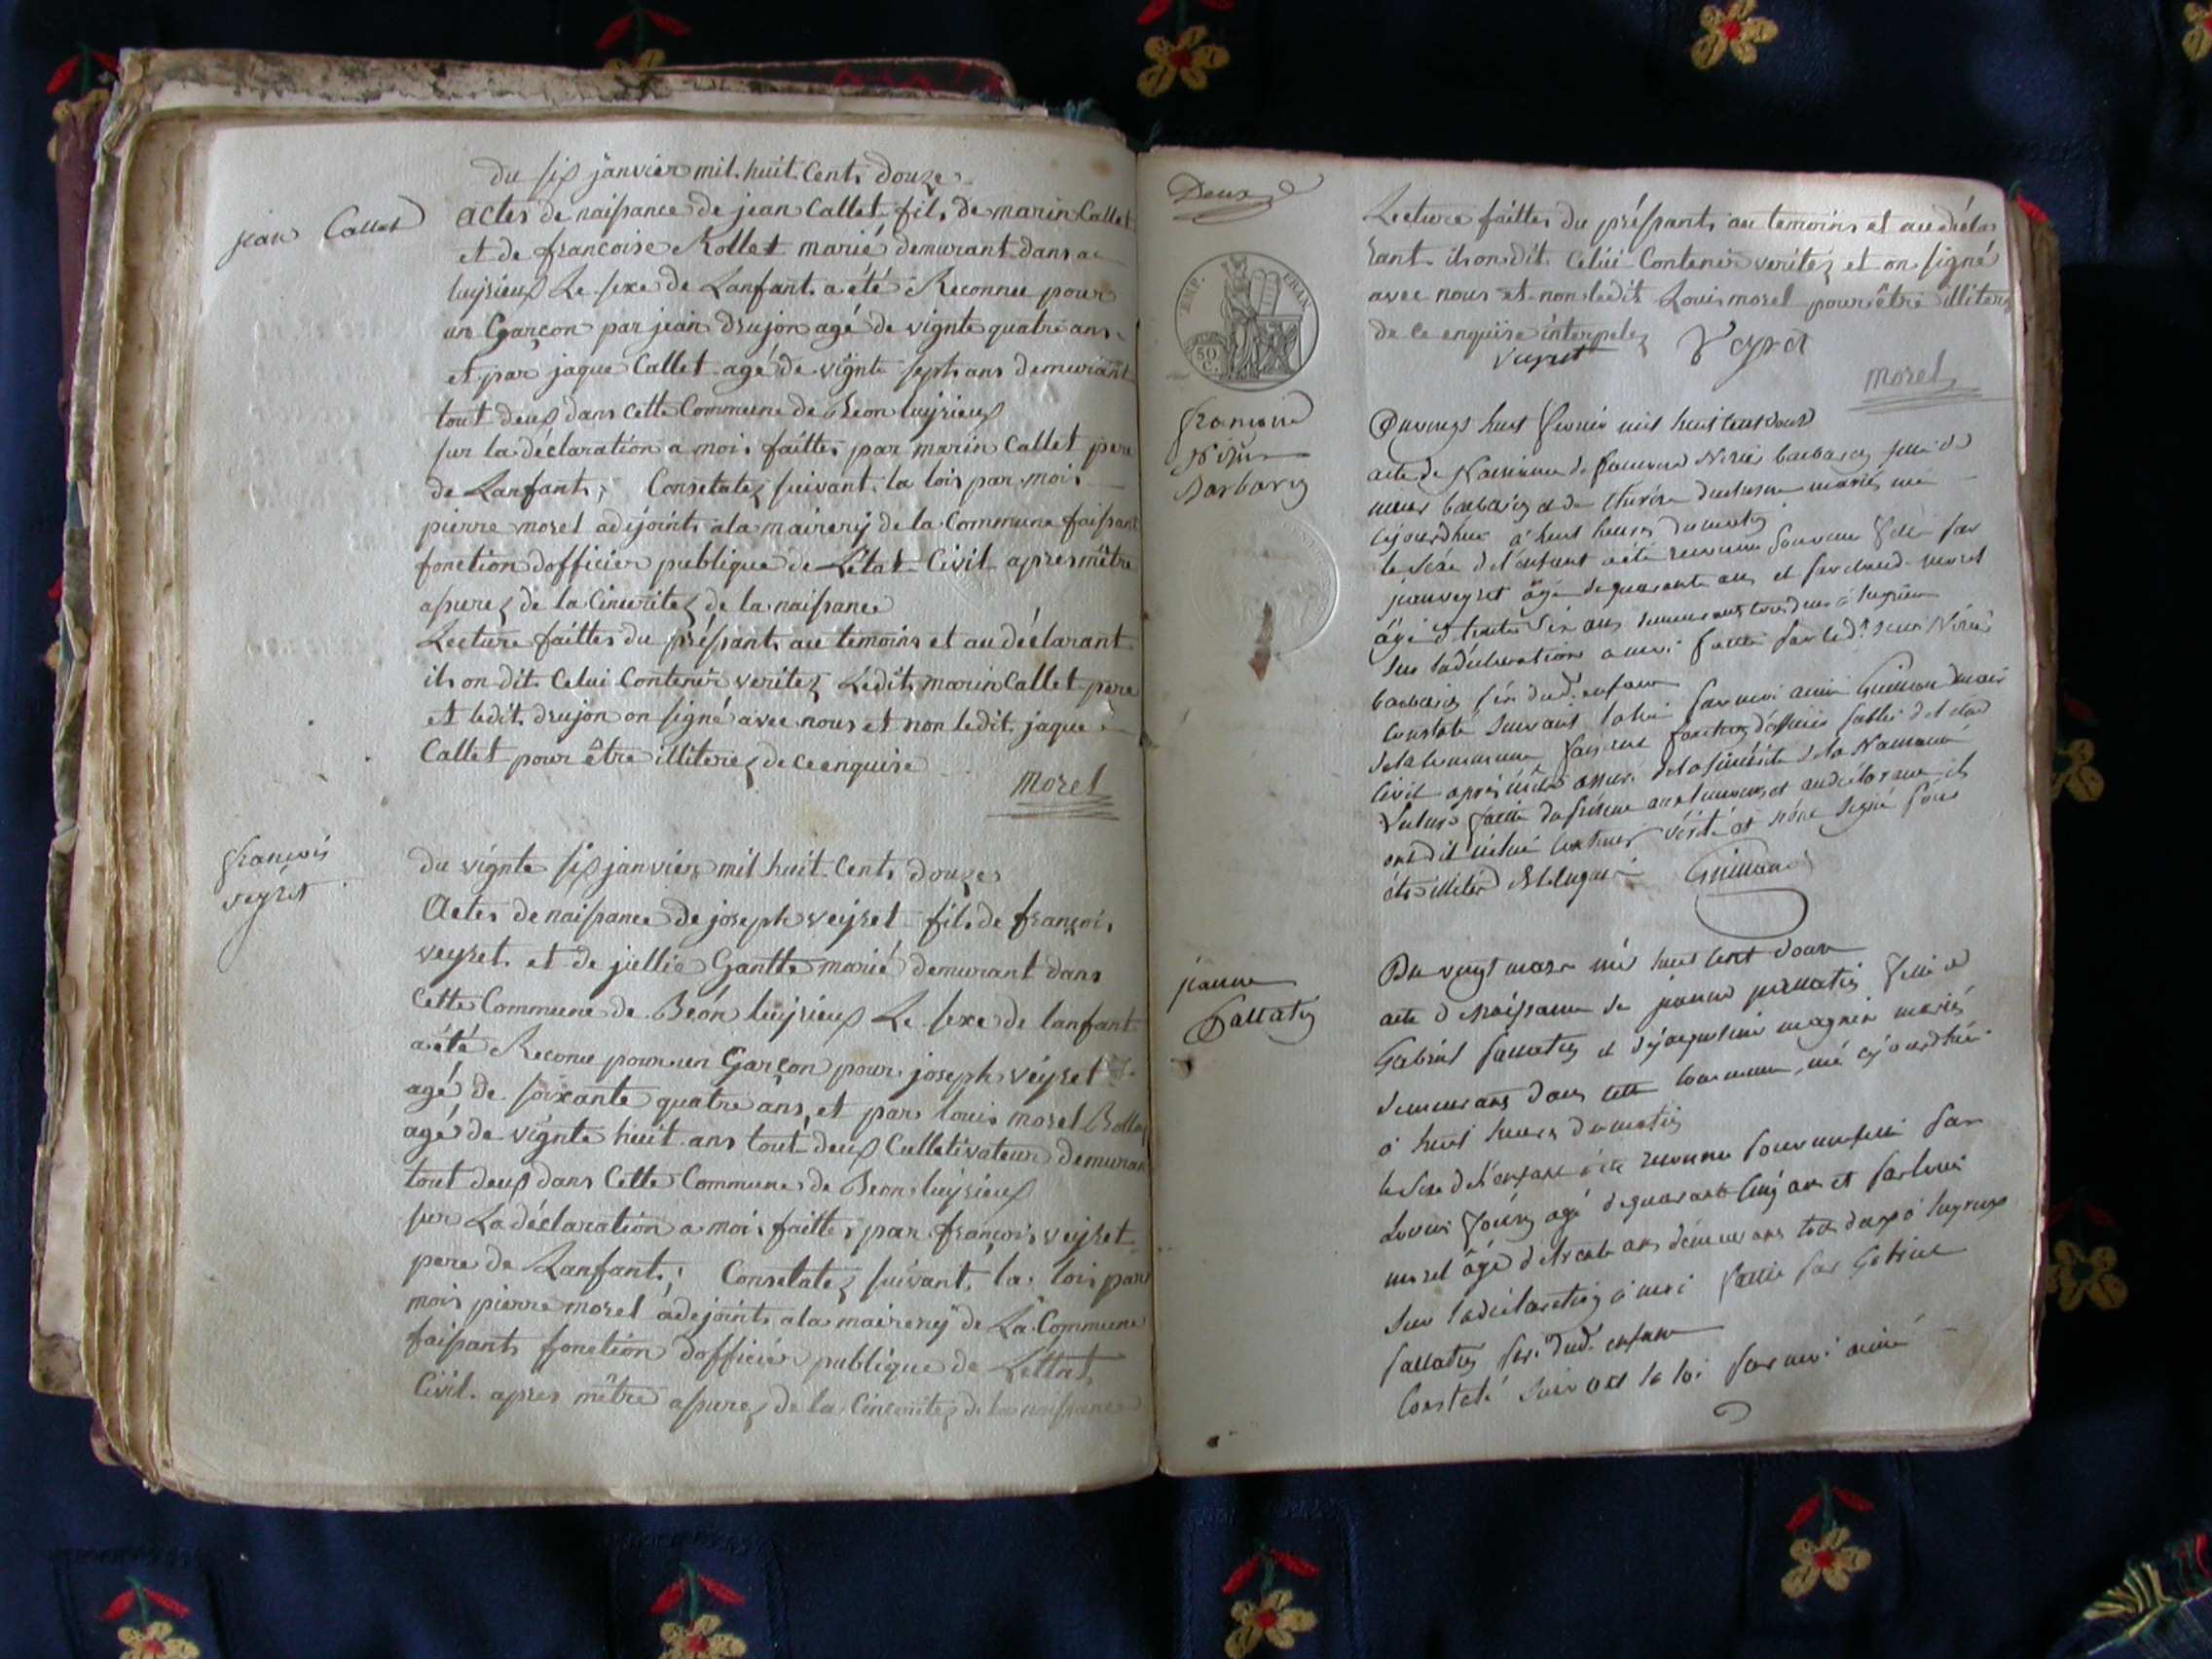 du six janvier mil huit Cents douze
jean Callet
actes de naissance de jean Callet fils de marin Callet
et de francoise Rollet marié demurant dans a
luyrieux Le sexe de Lanfant a été Reconnu pour
un Garçon par jean drujon agé de vignte quatre ans
et par jaque Callet agé de vignte septs ans demurant
tout deux dans cette Commune de Béon luyrieux
sur la déclaration a mois faittes par marin Callet pere
de Lanfants; Consetatez suivant la lois par mois
pierre morel adejoints ala mairerij de la Commune faissant
fonction dofficier publique de Létat Civil apres mêtre
assurez de la Cinceritez de la naissance
Lecture faittes du préssants au temoins et au déclarant
ils on dit Celui Contenir veritez Ledits marin Callet pere
et ledit drujon on signé avec nous et non ledit jaque
Callet pour être illiterez de ce enquise
morel
francois
veyret
du vignte six janvier mil huit Cents douzes
Actes de naissance de joseph veyret fils de françois
veyret et de jullie Gantte marié demurant dans
cette Commune de Béon luyrieux Le sexe de lanfant
a été Reconu pour un Garçon pour joseph veyret
agé de soixante quatre ans, et par louis morel
agé de vignte huit ans tout deux Culletivateur demurant
tout deux dans Cette Commune de Beon luyrieux
sur La déclaration a mois faittes par françois veyret
pere de Lanfants; Consetatez suivant la lois par
mois pierre morel adejoints ala mairerij de La Commune
faissants fonction dofficier publique de Lettat
Civil apres mêtre assurez de la Cinceritez de la naissance
Deux
EMP. FRAN.
50 C.
Lecture faittes du préssants au temoins et au décla
rant ils on dit Celui Contenir veritez et on signé
avec nous et non ledit Louis morel pour être illiterez
de ce enquise interpelez
veyret
morel
Barbarin
Du vingt huit fevrier mil huit cent douze
acte de Naissance de barbarin fille de
barbarin et de mariés née
cejourdhui à huit heures du matin
le sexe de l'enfant a été reconnu pour une fille par
jean veyret âgé de quarante ans et par morel
âgé de trente ans demeurant tous deux à luyrieu
sur la déclaration a moi faitte par led.
barbarin père dud. enfant
Constaté suivant la loi par moi Guillaud maire
de la commune faisant fonction d'officier public de l'état
civil après m'être assuré de la sincérité de la Naissance
Lecture faitte du présent aux temoins et au déclarant ils
ont dit icelui contenir vérité et n'ont signé pour
être illitéré
Guillaud
jeanne
Du vingt mars mil huit cent douze
acte de Naissance de jeanne fille de
Gabriel et magnin mariés
demeurans dans cette commune, née cejourdhui
à huit heures du matin
le sexe de l'enfant a été reconnu pour une fille par
Louis agé de quarante cinq ans et par louis
morel âgé de trente ans demeurans tous deux à luyrieux
sur la déclaration à moi faitte par Gabriel
père dud. enfant
Constaté suivant la loi par moi aimé